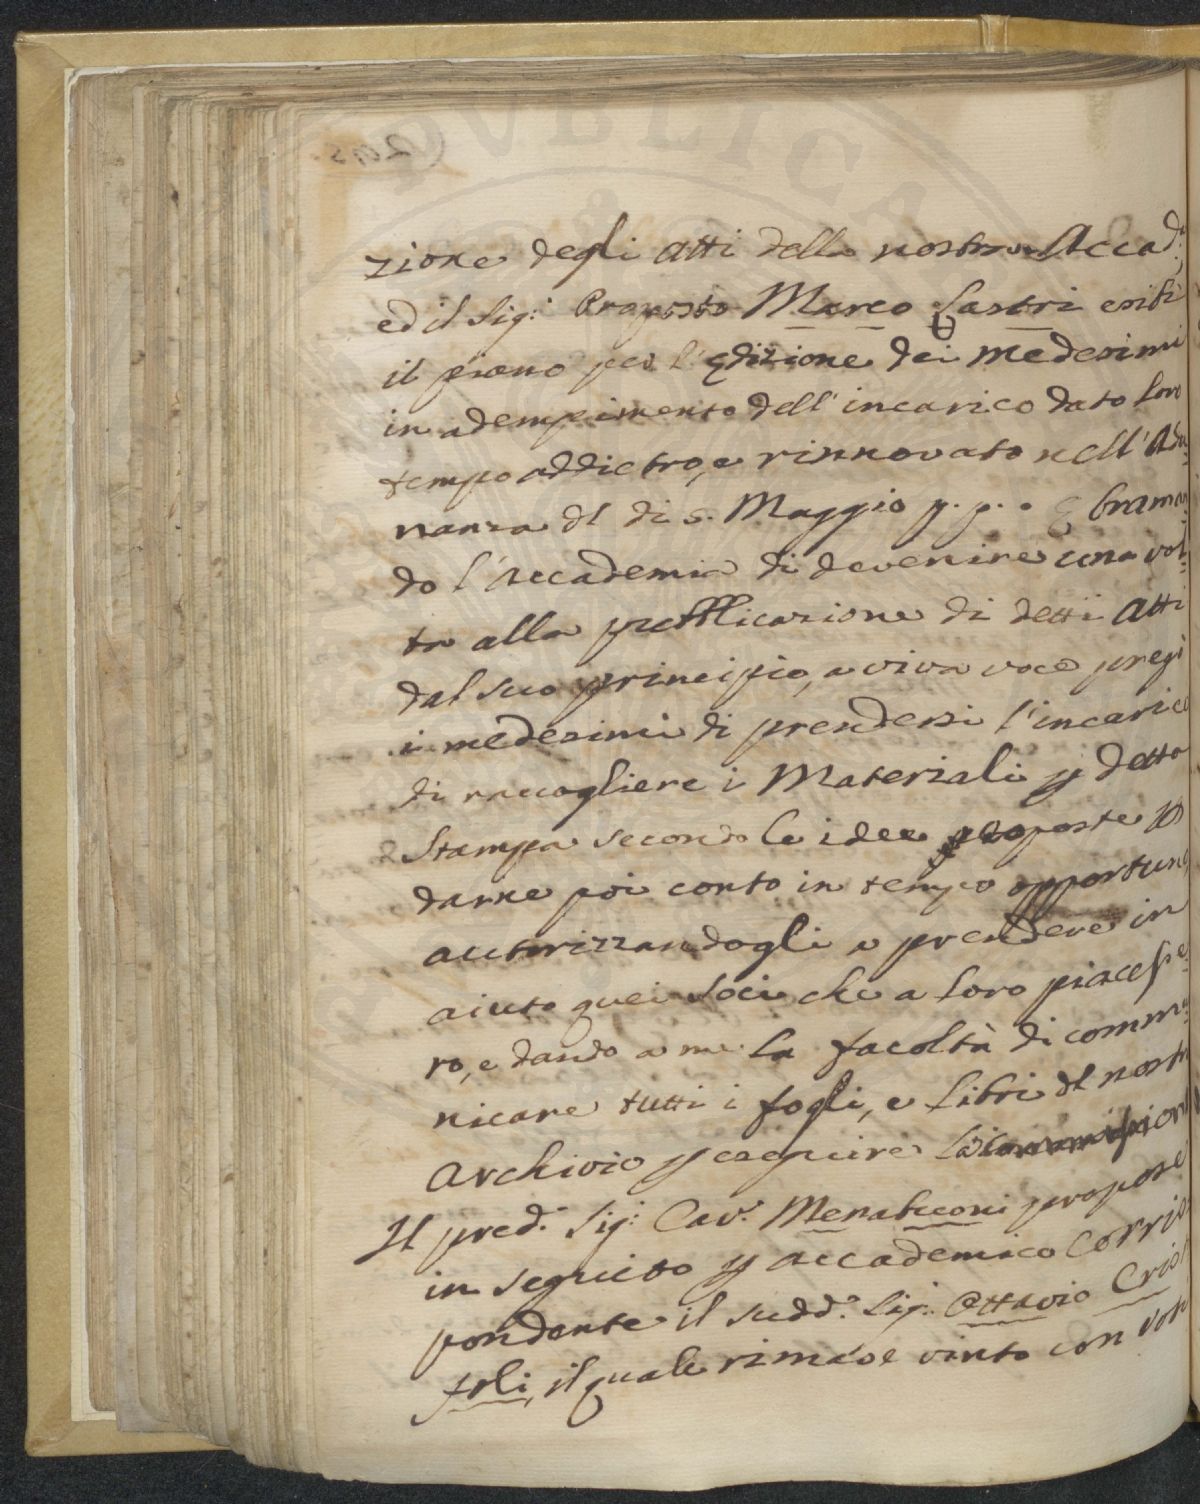 zione degli Atti della nostra Accad.
ed il Sig: Proposto Marco Lastri esibì
il piano per l'Edizione dei medesimi
in adempimento dell'incarico dato loro
tempo addietro, e rinnovato nell'Adu
nanza dl dì 5. Maggio p. p. E braman
do l'Accademia di devenire una vol
ta alla pubblicazione di detti Atti
dal suo principio, a viva voce pregò
i medesimi di prendersi l'incarico
di raccogliere i Materiali p detta
Stampa secondo le idee proposte p
darne poi conto in tempo opportuno
autorizzandogli a prendere in
aiuto quei Soci che a loro piacesse
ro, e dando a me la facoltà di commu
nicare tutti i fogli, e Libri dl nostro
Archivio p eseguire la commissione
Il pred: Sig: Cav: Menabuoni propose
in seguito p accademico Corris
pondente il sudd: Sig: Ottavio Cristo
foli, il quale rimase vinto con voti